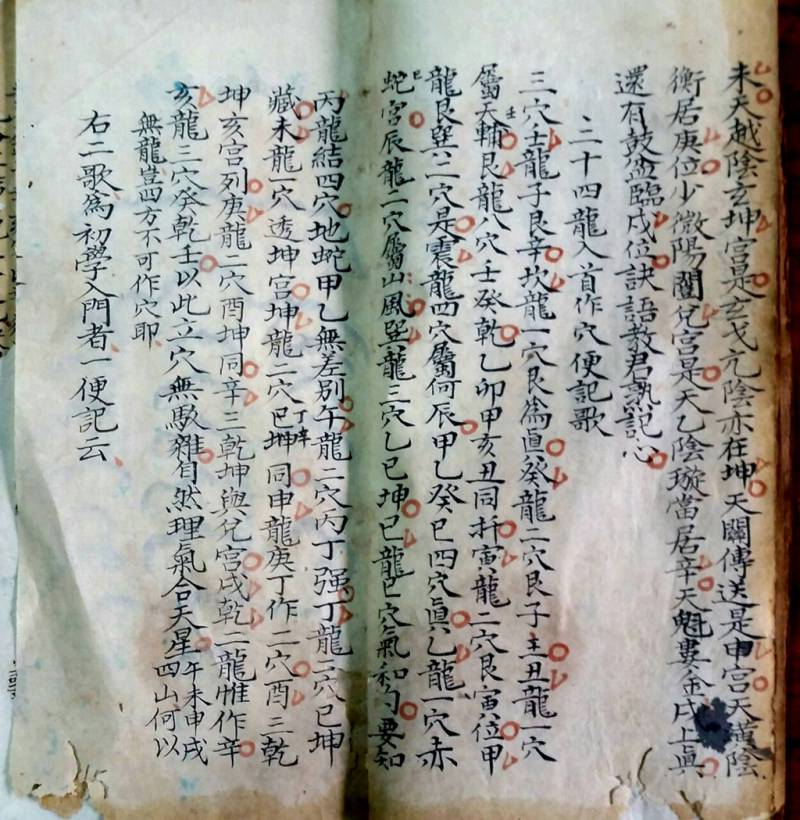 未天越陰玄坤宮是玄戈亢陰亦在坤天關傳送是申宮天潢陰
衡居庚位少微陽闔兌宮是天乙陰璇當居辛天魁婁金戌上真
還有鼓盆臨戌位訣語教君熟記心
二十四龍入首作穴便記歌
三穴壬龍子艮辛坎龍一穴艮為真癸龍二穴艮子主丑龍一穴
屬天輔艮龍八穴壬癸乾乙卯甲亥丑同扦寅龍二穴艮寅位甲
龍艮巽二穴是震龍四穴屬何辰甲乙癸巳四穴真乙龍一穴赤
蛇宮辰龍一穴屬山風巽龍三穴乙巳坤巳龍巳穴氣和勻要知
丙龍結四穴地蛇甲乙無差別午龍二穴丙丁强丁龍二穴巳坤
藏未龍一穴透坤宮坤龍二穴巳坤同申龍庚丁作二穴酉三乾
坤亥宮列庚龍二穴酉坤同辛三乾坤與兌宮戌乾二龍惟作辛
亥龍三穴癸乾壬以此立穴無駁雜自然理氣合天星午未申戌四山何以
無龍豈四方不可作穴耶
右二歌為初學入門者一便記云